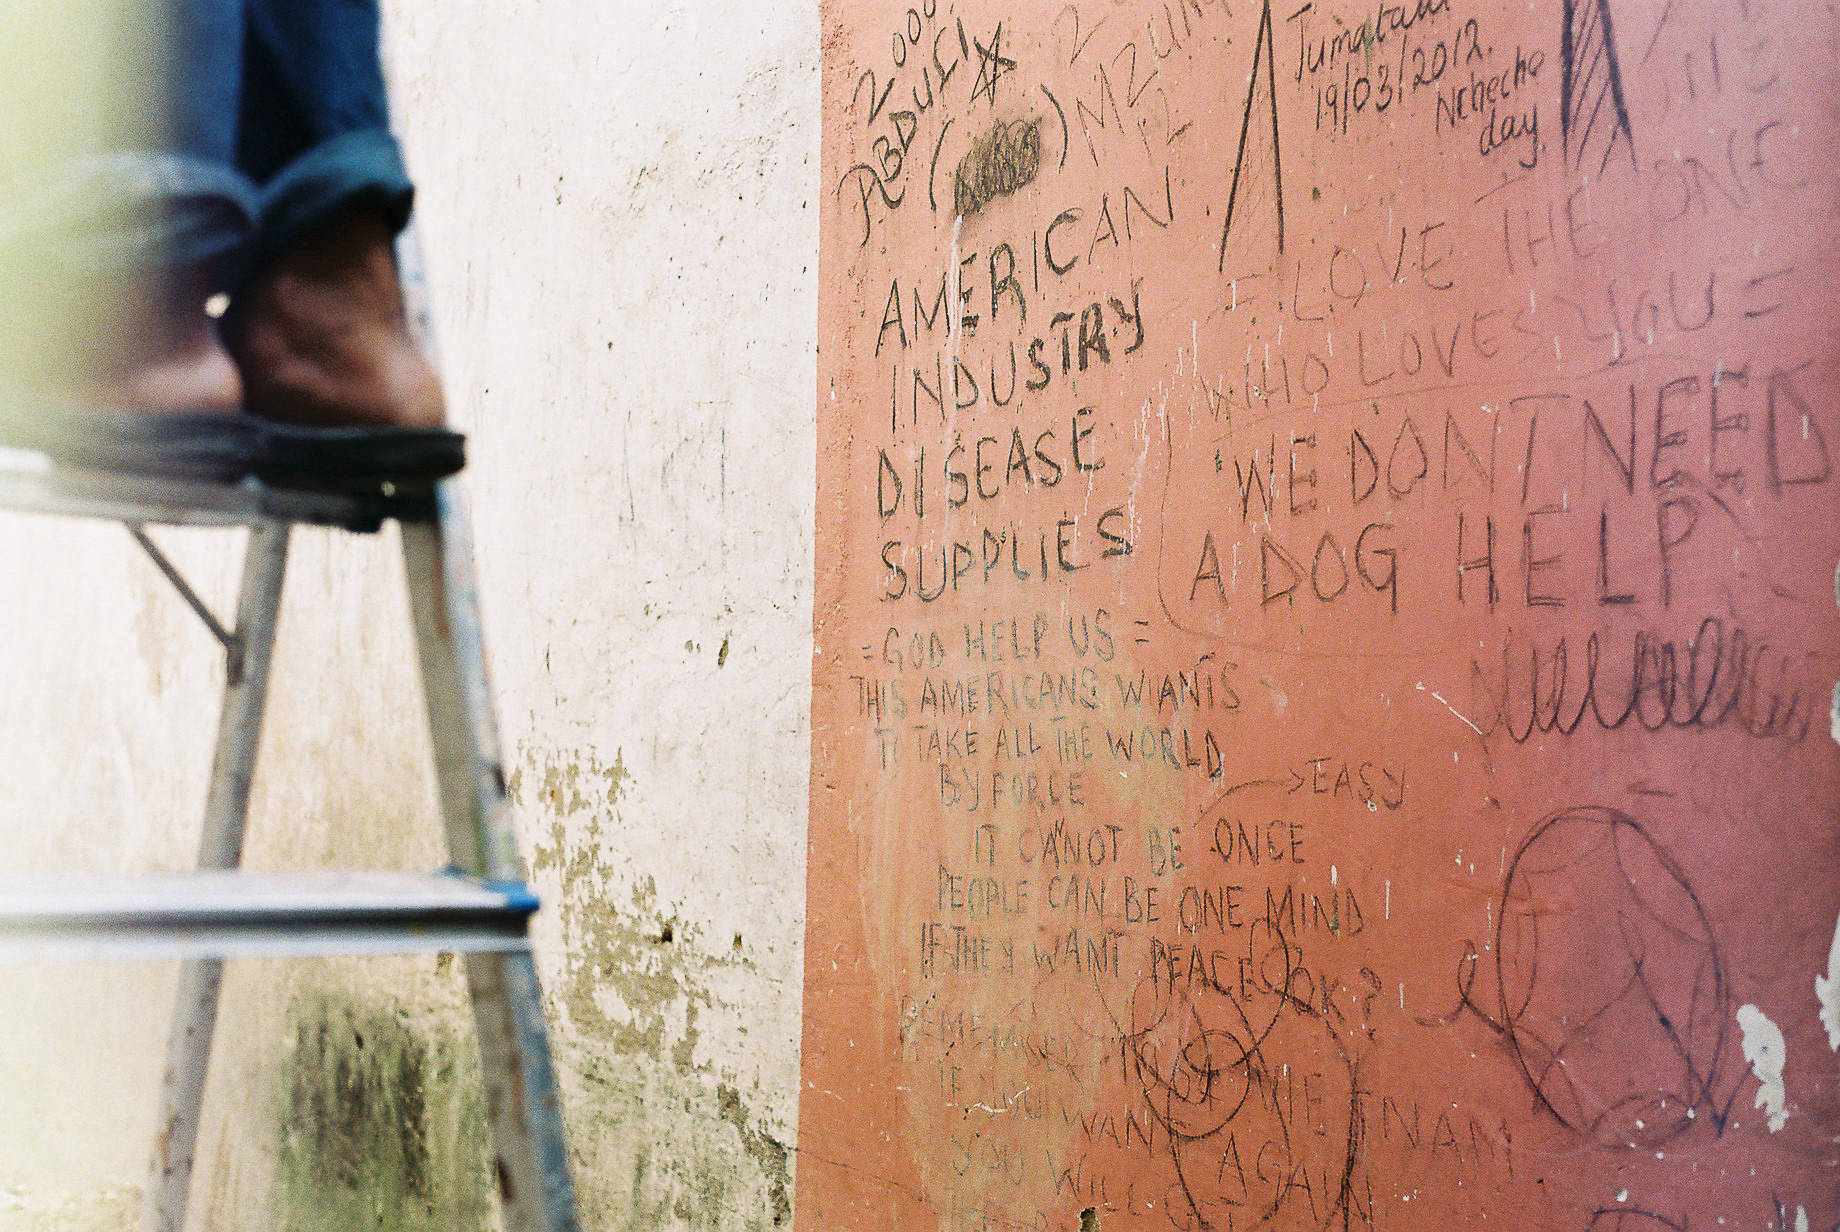 2000
ABDUSLY
MZUNG
12
Jumatatu
19/03/2012.
Ncheche
day
AMERICAN
INDUSTRY
DISEASE
SUPPLIES
= LOVE THE ONE
WHO LOVES YOU =
WE DONT NEED
A DOG HELP
= GOD HELP US =
THIS AMERICANS WANTS
TO TAKE ALL THE WORLD
BY FORCE
EASY
IT CANNOT BE ONCE
PEOPLE CAN BE ONE MIND
IF THEY WANT PEACE OK?
REMEMBER VIETNAM
IF YOU WANT AGAIN
YOU WILL GET